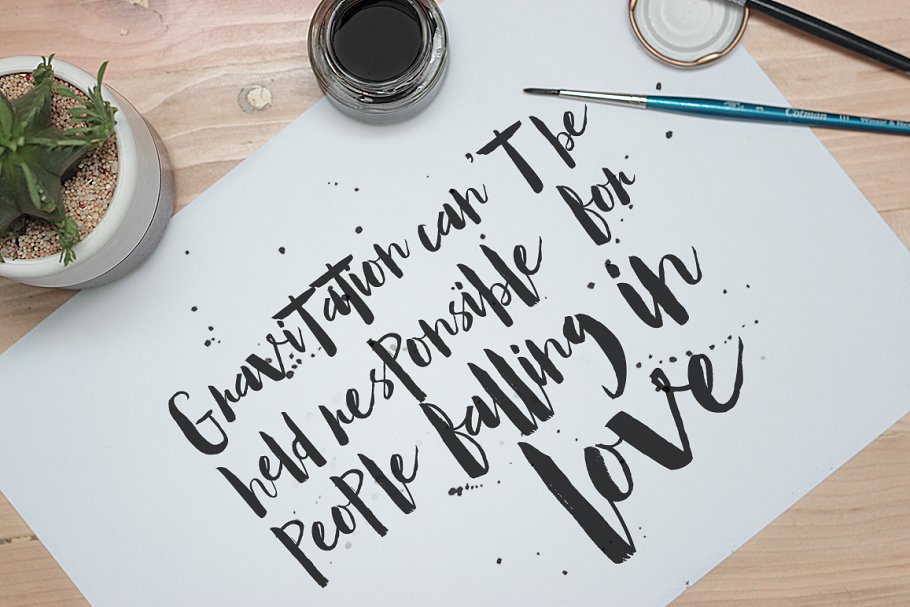 Gravitation can't be
held responsible for
people falling in
love
Cotman 111 Winsor & Ne